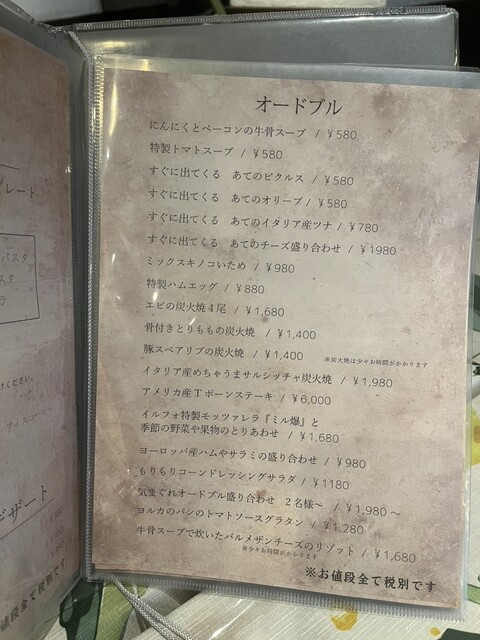 オードブル
にんにくとベーコンの牛骨スープ / ¥580
特製トマトスープ / ¥580
すぐに出てくる あてのピクルス / ¥580
すぐに出てくる あてのオリーブ / ¥580
すぐに出てくる あてのイタリア産ツナ / ¥780
すぐに出てくる あてのチーズ盛り合わせ / ¥1980
ミックスキノコいため / ¥980
特製ハムエッグ / ¥880
エビの炭火焼4尾 / ¥1,680
骨付きとりももの炭火焼 / ¥1,400
豚スペアリブの炭火焼 / ¥1,400
※炭火焼は少々お時間がかかります
イタリア産めちゃうまサルシッチャ炭火焼 / ¥1,980
アメリカ産Tボーンステーキ / ¥6,000
イルフォ特製モッツァレラ『ミル爆』と
季節の野菜や果物のとりあわせ / ¥1,680
ヨーロッパ産ハムやサラミの盛り合わせ / ¥980
もりもりコーンドレッシングサラダ / ¥1180
気まぐれオードブル盛り合わせ 2名様~ / ¥1,980~
ヨルカのパンのトマトソースグラタン / ¥1,280
牛骨スープで炊いたパルメザンチーズのリゾット / ¥1,680
※少々お時間がかかります
※お値段全て税別です
レート
パスタ
スタ
ラ
ください。
アイスコーヒー
デザート
値段全て税別です